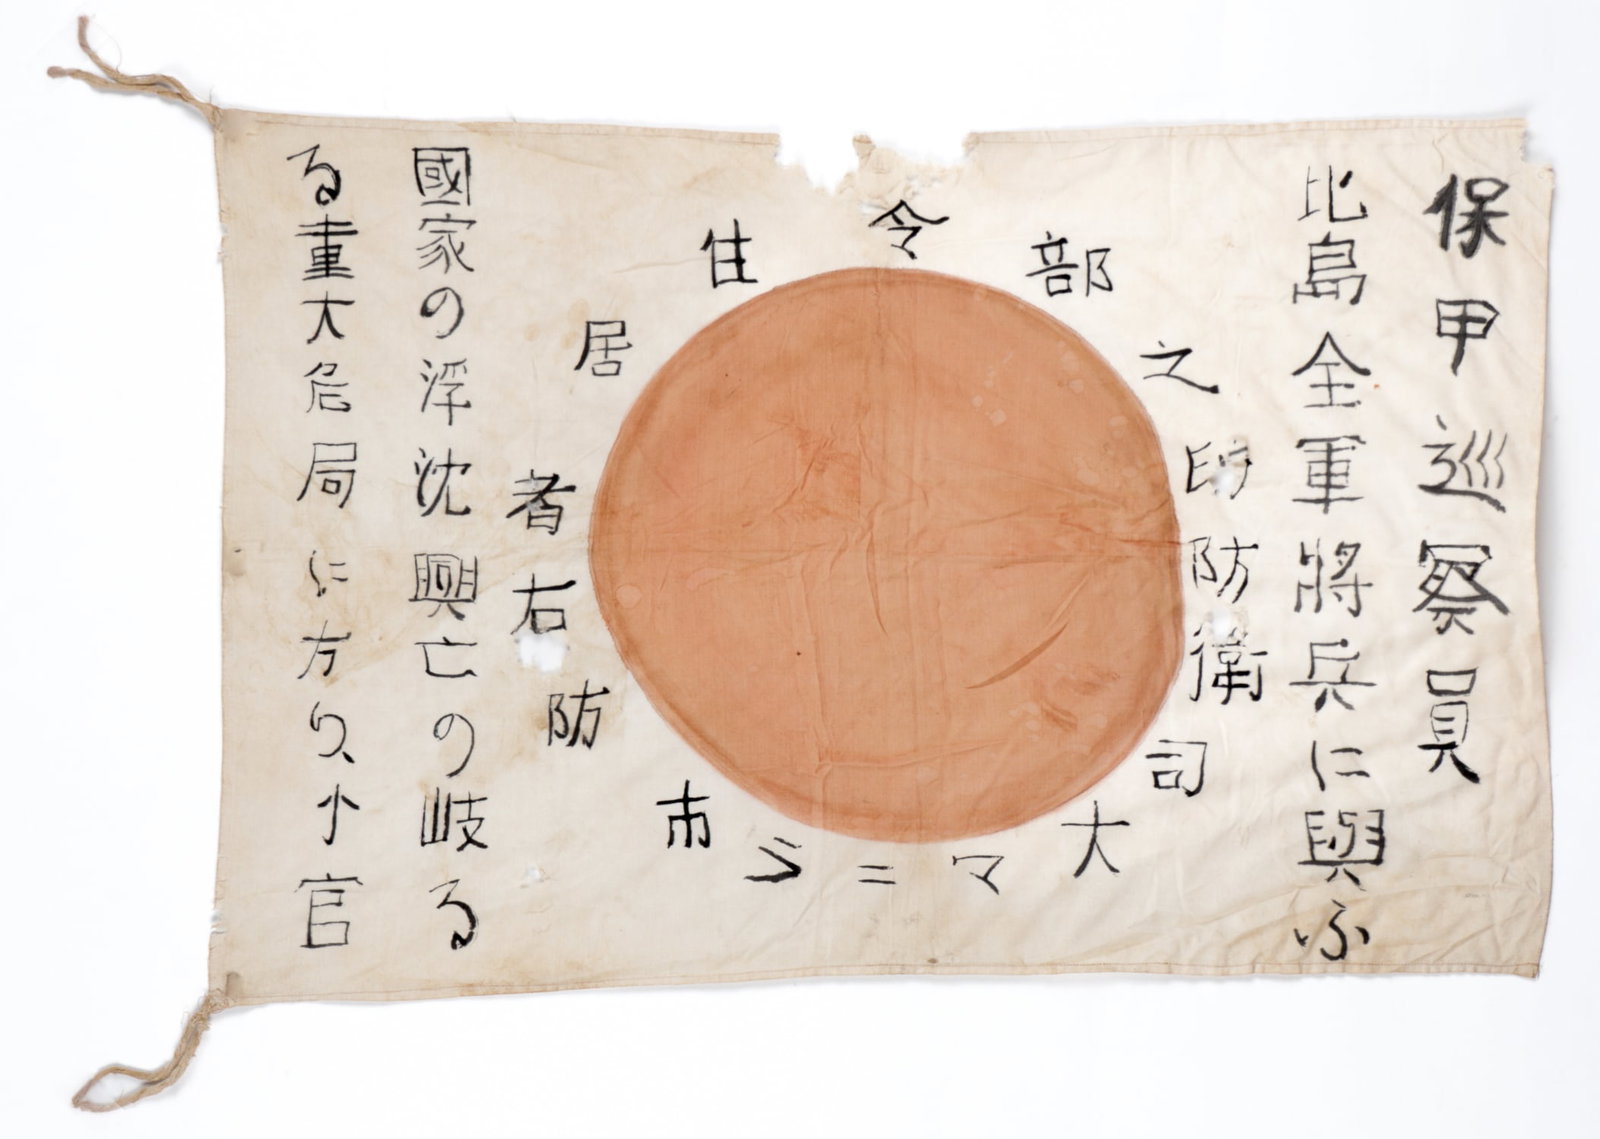 保甲巡察員
比島全軍將兵に與ふ
住居者右防
市マニラ大司
衛防印之部令
國家の浮沈興亡の岐る
る重大危局に方り小官